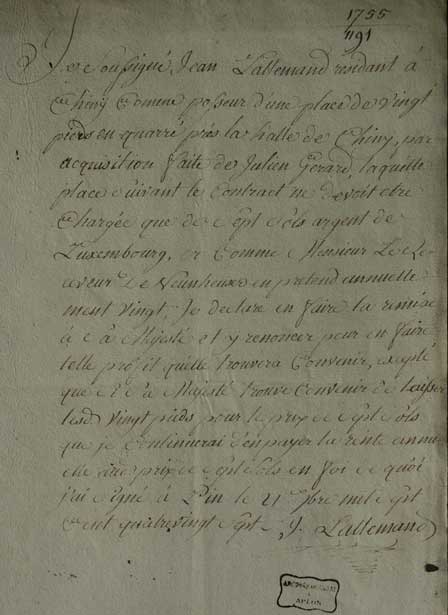 1755
1191
Je soussigné, Jean Lallemand résidant à
Chiny Comme possesseur d'une place de vingt
pieds en quarré près la halle de Chiny, par
acquisition faite de Julien Gerard, laquelle
place suivant le Contract ne devoit etre
Chargée que de sept sols argent de
Luxembourg, et Comme Monsieur Le Re
ceveur De en pretend annuelle
ment vingt, Je declare en faire la remise
à sa Majesté et y renoncer pour en faire
telle profit qu'elle trouvera Convenir, excepté
que si sa Majesté trouve Convenir de laisser
lesd vingt pieds pour le prix de sept sols
que je Continuerai d'en payer la rente annu
elle au prix de sept sols en foi de quoi
j'ai signé à Pin le 21 7bre mil sept
Cent quatre vingt sept J. Lallemand
ARLON